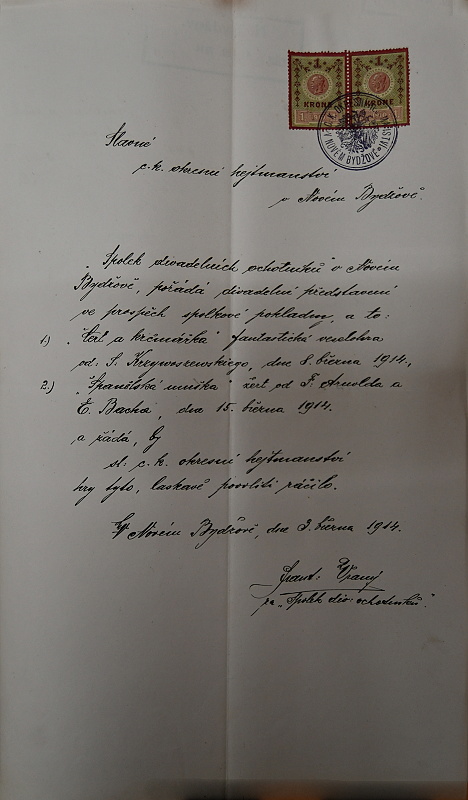 1 1
KRONE KRONE
V NOVÉM BYDŽOVĚ
Slavné
c.k. okresní hejtmanství
v Novém Bydžově.
"Spolek divadelních ochotníků" v Novém
Bydžově, pořádá divadelní představení
ve prospěch spolkové pokladny, a to:
1.) "Čert a krčmářka" fantastická veselohra
od S. Krzywoszewského, dne 8. března 1914.,
2.) "Španělská muška" žert od F. Arnolda a
E. Bacha, dne 15. března 1914.
a žádá, by
sl. c. k. okresní hejtmanství
hry tyto, laskavě povoliti ráčilo.
V Novém Bydžově, dne 3. března 1914.
Frant. Vraný
za "Spolek div. ochotníků".